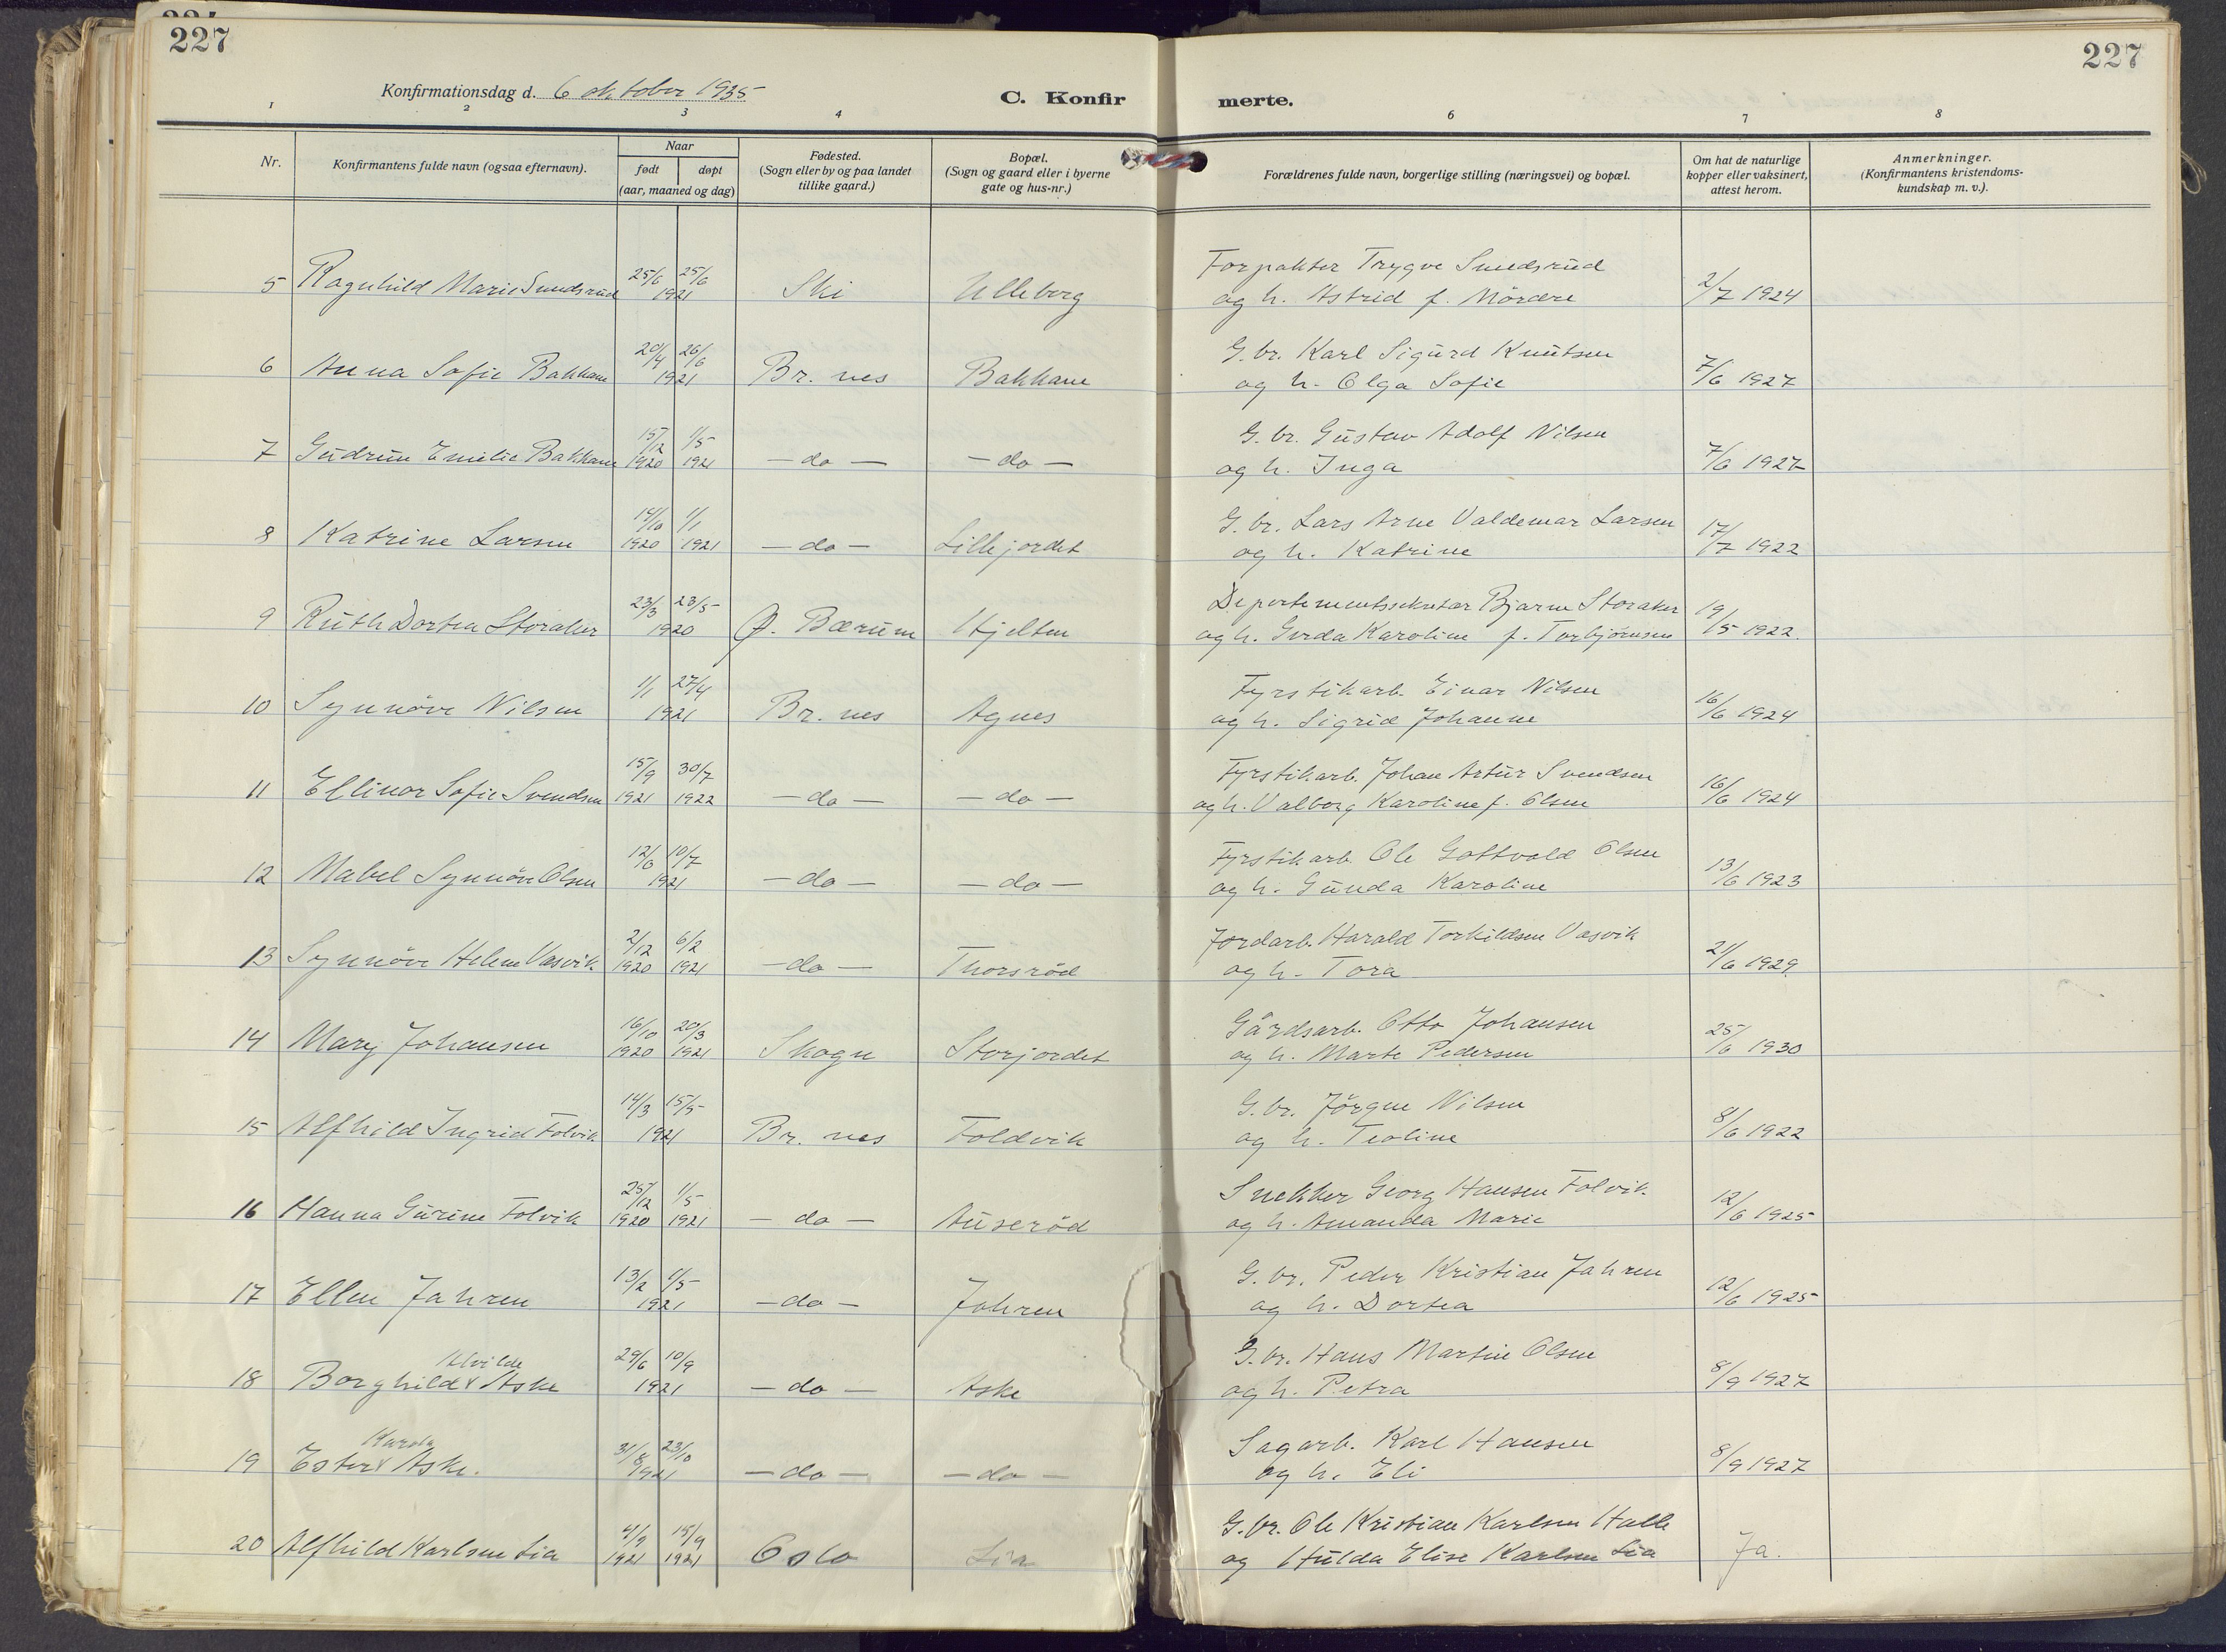 227
227
Konfirmationsdag d. 6 oktober 1935
C. Konfir
merte.
1 2 3 4 6 7 8
Nr.
Konfirmantens fulde navn (ogsaa efternavn).
Naar
født døpt
(aar, maaned og dag)
Fødested.
(Sogn eller by og paa landet
tillike gaard.)
Bopæl.
(Sogn og gaard eller i byerne
gate og hus-nr.)
Forældrenes fulde navn, borgerlige stilling (næringsvei) og bopæl.
Om hat de naturlige
kopper eller vaksinert,
attest herom.
Anmerkninger.
(Konfirmantens kristendoms-
kundskap m. v.).
25/6 25/6 Forpakter Trygve Smedsrud
5 Ragnhild Marie Smedsrud 1921 Ski Ulleberg og h. Astrid f. Mördre 2/7 1924
20/4 26/6 G.br. Karl Sigurd Knutsen
6 Anna Sofie Bakkane 1921 Br. nes Bakkane og h. Olga Sofie 7/6 1927
15/12 1/5 G.br. Gustav Adolf Nilsen
7 Gudrun Emilie Bakkane 1920 1921 - do - - do - og h. Inga 7/6 1927
14/10 1/1 G.br. Lars Arne Valdemar Larsen
8 Katrine Larsen 1920 1921 - do - Lillejordet og h. Katrine 17/7 1922
23/3 23/5 Departementssekretær Bjarne Storaker
9 Ruth Dortea Storaker 1920 Ø. Bærum Hjelten og h. Gerda Karoline f. Torbjørnsen 19/5 1922.
1/1 27/4 Fyrstikarb. Einar Nilsen
10 Synnöve Nilsen 1921 Br. nes Agnes og h. Sigrid Johanne 16/6 1924
15/9 30/7 Fyrstikarb. Johan Artur Svendsen
11 Ellinor Sofie Svendsen 1921 1922 - do - - do - og h. Valborg Karoline f. Olsen 16/6 1924
12/6 10/7 Fyrstikarb. Ole Gottvald Olsen
12 Mabel Synnöve Olsen 1921 - do - - do - og h. Gunda Karoline 13/6 1923
2/12 6/2 Jordarb. Harald Torkildsen Vasvik
13 Synnöve Helene Vasvik 1920 1921 - do - Thorsröd og h. Tora 21/6 1929.
16/10 20/3 Gårdsarb. Otto Johansen
14 Mary Johansen 1920 1921 Skogn Storjordet og h. Marte Pedersen 25/6 1930
14/3 15/5 G.br. Jörgen Nilsen
15 Alfhild Ingrid Folvik 1921 Br. nes Foldvik og h. Teoline 8/6 1922
25/12 1/5 Snekker Georg Hansen Folvik
16 Hanna Gurine Folvik 1920 1921 - do - Auseröd og h. Amanda Marie 12/6 1925
13/2 1/5 G.br. Peder Kristian Jahren
17 Ellen Jahren 1921 - do - Jahren og h. Dortea 12/6 1925
Alvilde 29/6 10/9 G.br. Hans Martin Olsen
18 Borghild Aske 1921 - do - Aske og h. Petra 8/9 1927
Karola 31/8 23/10 Sagarb. Karl Hansen
19 Ester Aske. 1921 - do - - do - og h. Eli 8/9 1927
4/9 15/9 G.br. Ole Kristian Karlsen Halle
20 Alfhild Karlsen Lia 1921 1921 Oslo Lia og Hulda Elise Karlsen Lia Ja.